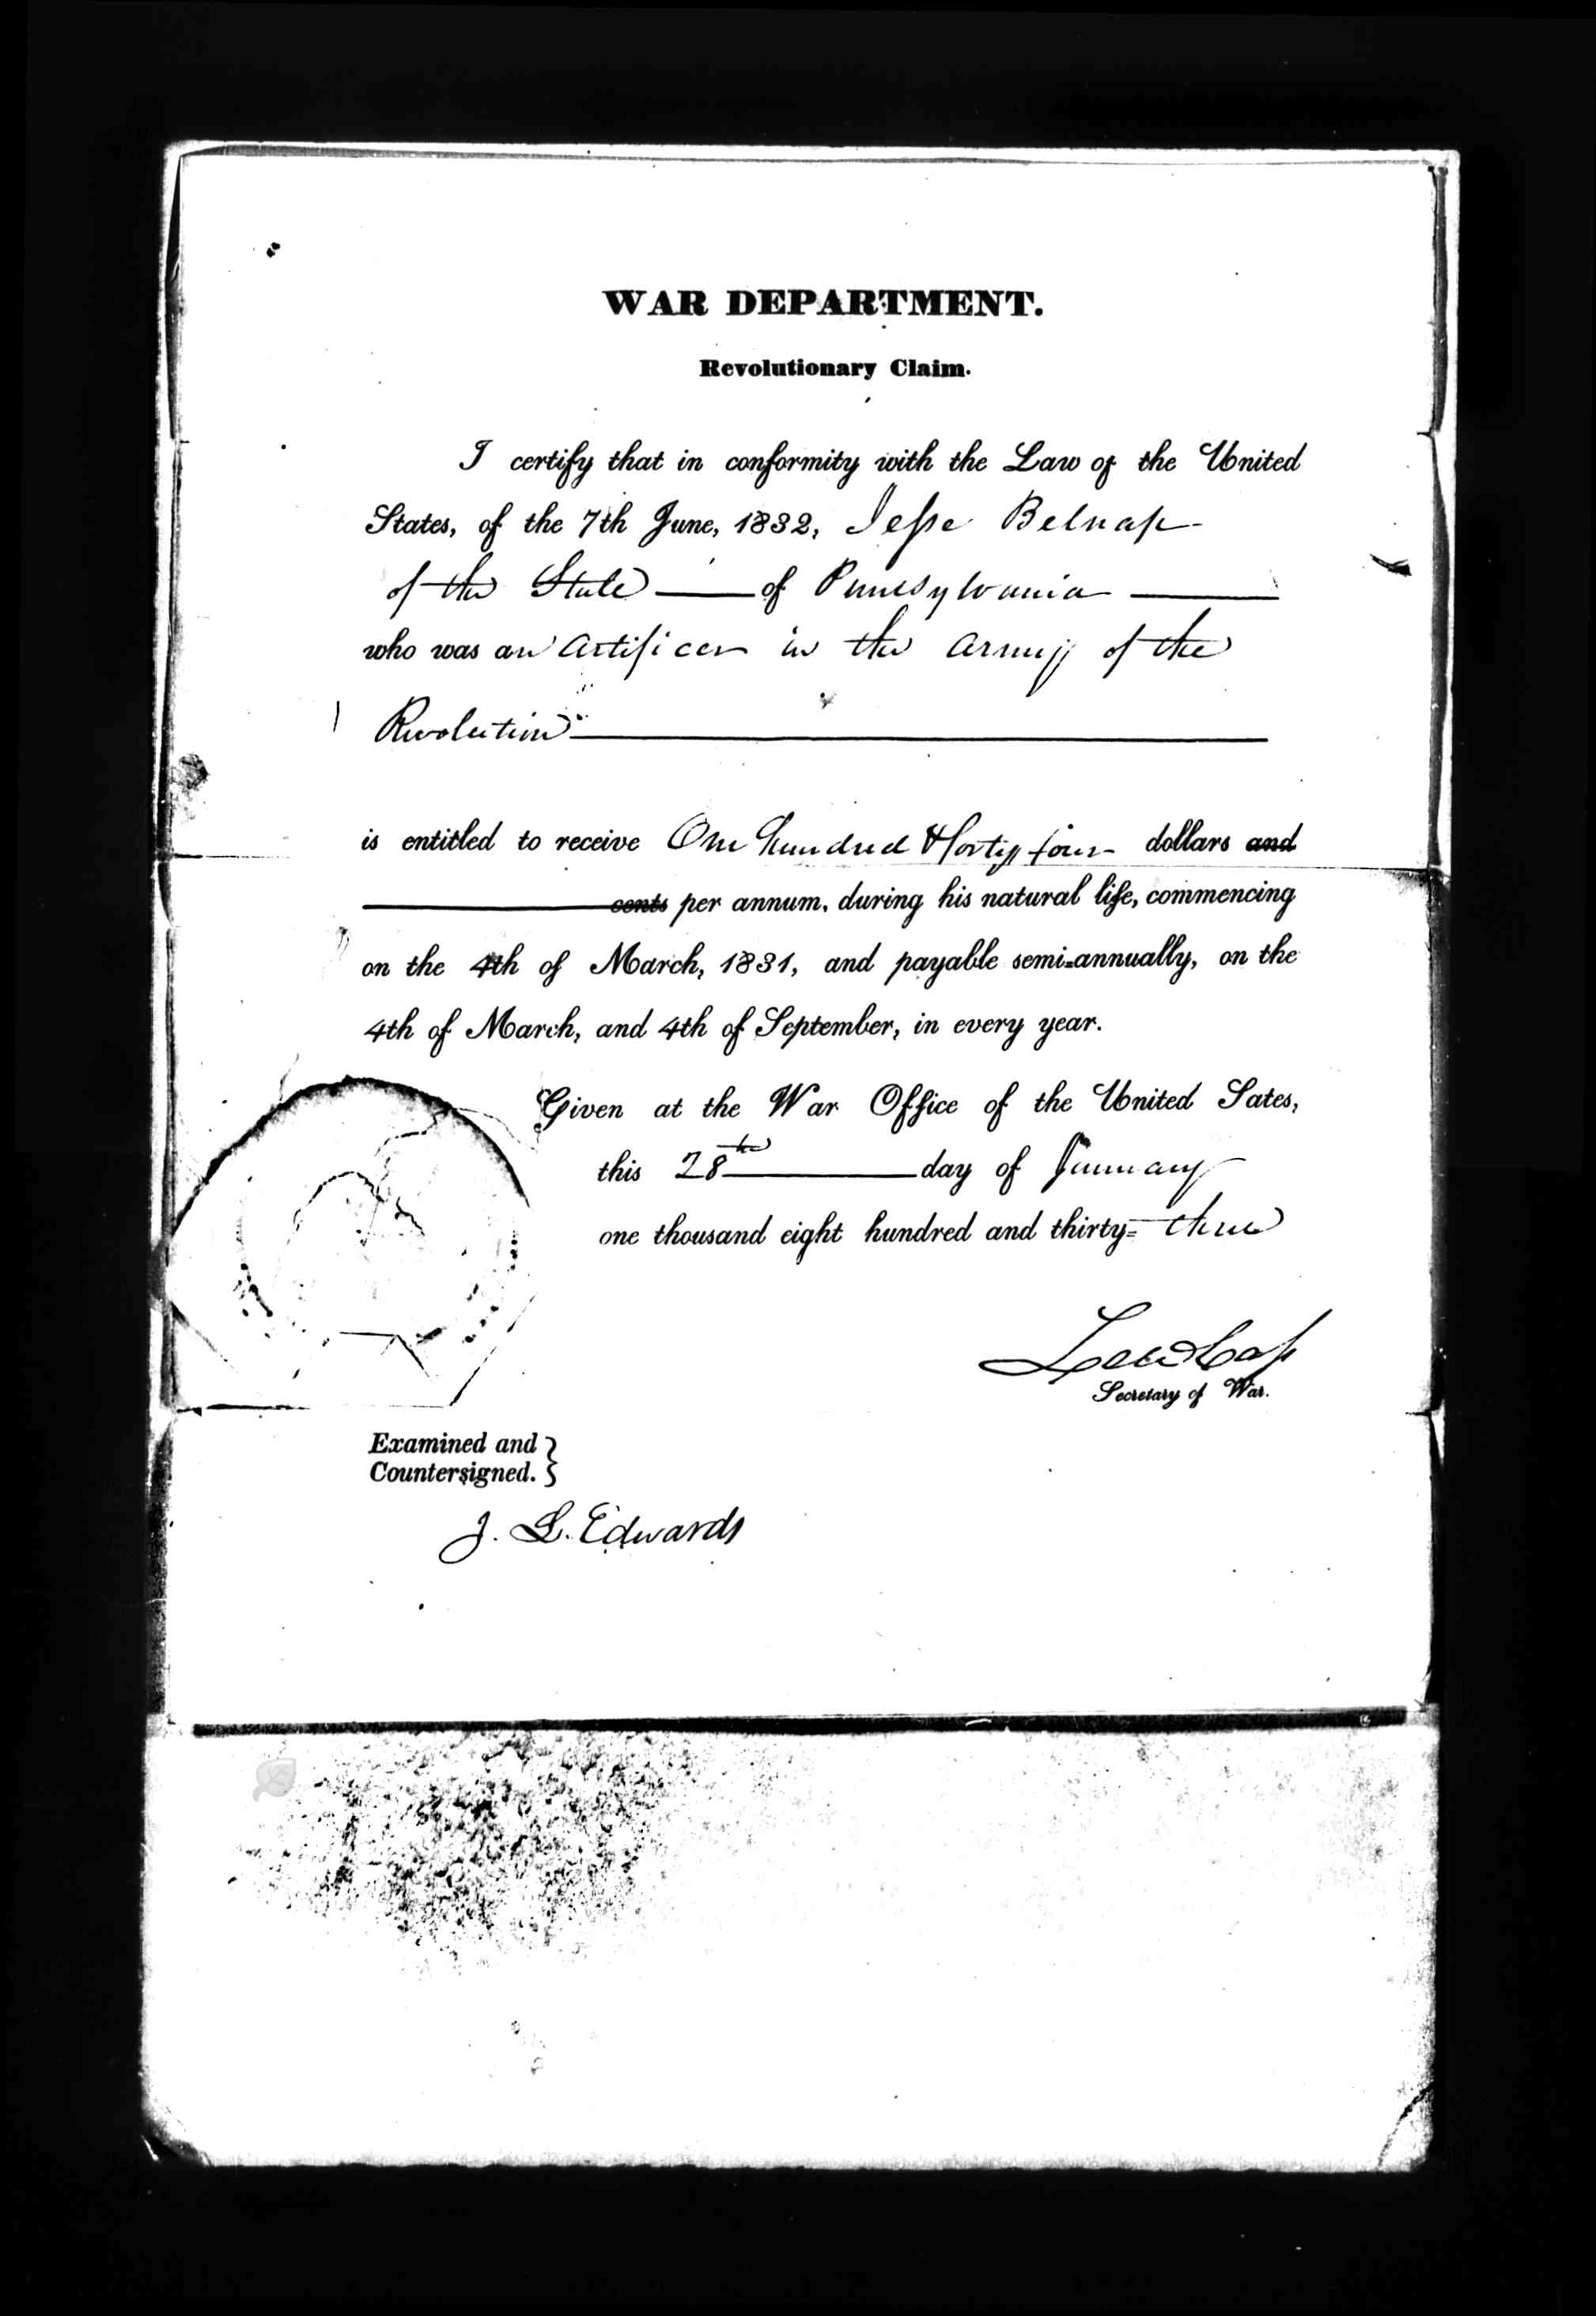 WAR DEPARTMENT.
Revolutionary Claim.
I certify that in conformity with the Law of the United
States, of the 7th June, 1832, Jesse Belnap
of the State of Pennsylvania
who was an artificer in the army of the
Revolution
is entitled to receive One hundred & forty four dollars and
cents per annum, during his natural life, commencing
on the 4th of March, 1831, and payable semi=annually, on the
4th of March, and 4th of September, in every year.
Given at the War Office of the United Sates,
this 28th day of January
one thousand eight hundred and thirty= three
Lew Cass
Secretary of War.
Examined and
Countersigned.
J. L. Edwards